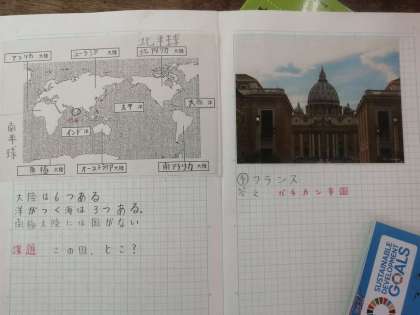 北半球
アフリカ 大陸
ユーラシア 大陸
北アメリカ 大陸
太平 洋
大西 洋
インド 洋
南半球
南極 大陸
オーストラリア 大陸
南アメリカ 大陸
大陸は6つある
洋がつく海は3つある。
南極大陸には国がない
課題 この国、どこ?
フランス
答え バチカン市国
SUSTAINABLE
DEVELOPMENT
GOALS